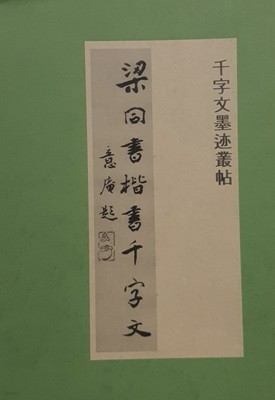 千字文墨迹叢帖
梁同書楷書千字文
意庵題